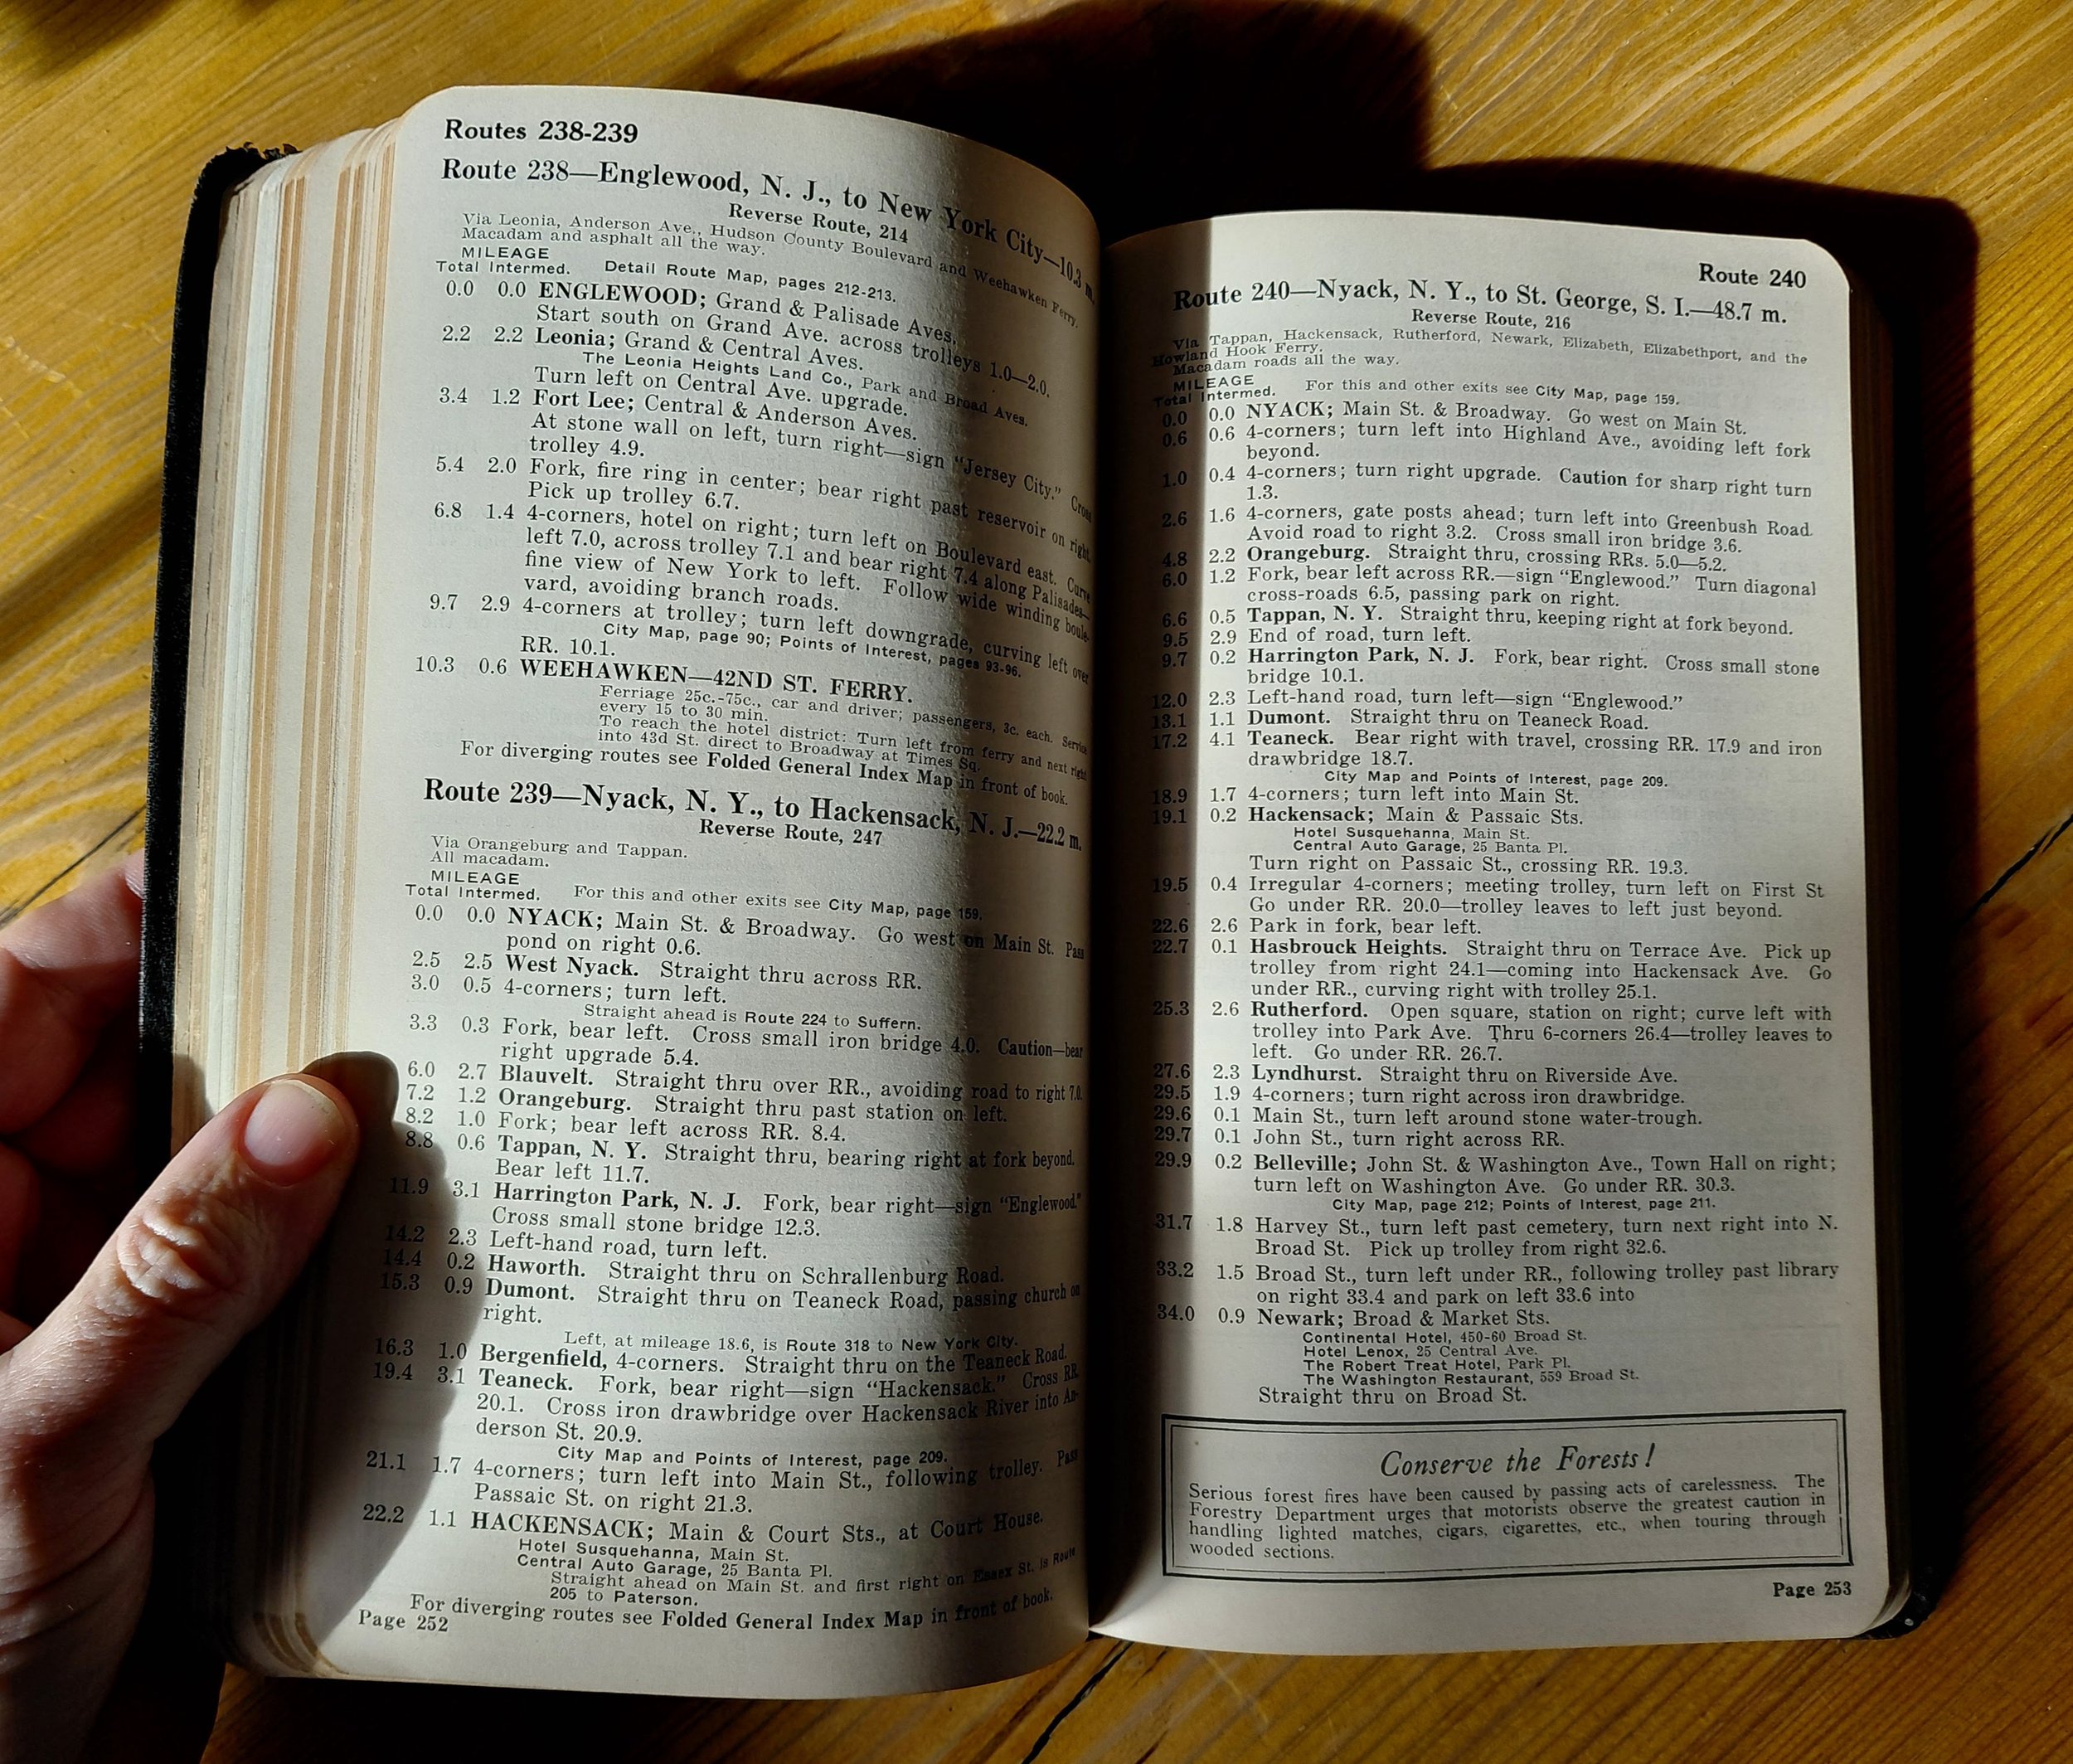 Routes 238-239
Route 238—Englewood, N. J., to New York City—10.3 m.
Reverse Route, 214
Via Leonia, Anderson Ave., Hudson County Boulevard and Weehawken Ferry.
Macadam and asphalt all the way.
MILEAGE
Total Intermed. Detail Route Map, pages 212-213.
0.0 0.0 ENGLEWOOD; Grand & Palisade Aves.
Start south on Grand Ave. across trolleys 1.0—2.0.
2.2 2.2 Leonia; Grand & Central Aves.
The Leonia Heights Land Co., Park and Broad Aves.
Turn left on Central Ave. upgrade.
3.4 1.2 Fort Lee; Central & Anderson Aves.
At stone wall on left, turn right—sign "Jersey City." Cross
trolley 4.9.
5.4 2.0 Fork, fire ring in center; bear right past reservoir on right.
Pick up trolley 6.7.
6.8 1.4 4-corners, hotel on right; turn left on Boulevard east. Curve
left 7.0, across trolley 7.1 and bear right 7.4 along Palisades—
fine view of New York to left. Follow wide winding boule-
vard, avoiding branch roads.
9.7 2.9 4-corners at trolley; turn left downgrade, curving left over
City Map, page 90; Points of Interest, pages 93-96.
RR. 10.1.
10.3 0.6 WEEHAWKEN—42ND ST. FERRY.
Ferriage 25c.-75c., car and driver; passengers, 3c. each. Service
every 15 to 30 min.
To reach the hotel district: Turn left from ferry and next right
into 43d St. direct to Broadway at Times Sq.
For diverging routes see Folded General Index Map in front of book.
Route 239—Nyack, N. Y., to Hackensack, N. J.—22.2 m.
Reverse Route, 247
Via Orangeburg and Tappan.
All macadam.
MILEAGE
Total Intermed. For this and other exits see City Map, page 159.
0.0 0.0 NYACK; Main St. & Broadway. Go west on Main St. Pass
pond on right 0.6.
2.5 2.5 West Nyack. Straight thru across RR.
3.0 0.5 4-corners; turn left.
Straight ahead is Route 224 to Suffern.
3.3 0.3 Fork, bear left. Cross small iron bridge 4.0. Caution—bear
right upgrade 5.4.
6.0 2.7 Blauvelt. Straight thru over RR., avoiding road to right 7.0.
7.2 1.2 Orangeburg. Straight thru past station on left.
8.2 1.0 Fork; bear left across RR. 8.4.
8.8 0.6 Tappan, N. Y. Straight thru, bearing right at fork beyond.
Bear left 11.7.
11.9 3.1 Harrington Park, N. J. Fork, bear right—sign "Englewood."
Cross small stone bridge 12.3.
14.2 2.3 Left-hand road, turn left.
14.4 0.2 Haworth. Straight thru on Schrallenburg Road.
15.3 0.9 Dumont. Straight thru on Teaneck Road, passing church on
right.
Left, at mileage 18.6, is Route 318 to New York City.
16.3 1.0 Bergenfield, 4-corners. Straight thru on the Teaneck Road.
19.4 3.1 Teaneck. Fork, bear right—sign "Hackensack." Cross RR.
20.1. Cross iron drawbridge over Hackensack River into An-
derson St. 20.9.
City Map and Points of Interest, page 209.
21.1 1.7 4-corners; turn left into Main St., following trolley. Pass
Passaic St. on right 21.3.
22.2 1.1 HACKENSACK; Main & Court Sts., at Court House.
Hotel Susquehanna, Main St.
Central Auto Garage, 25 Banta Pl.
Straight ahead on Main St. and first right on Essex St. is Route
205 to Paterson.
For diverging routes see Folded General Index Map in front of book.
Page 252
Route 240
Route 240—Nyack, N. Y., to St. George, S. I.—48.7 m.
Reverse Route, 216
Via Tappan, Hackensack, Rutherford, Newark, Elizabeth, Elizabethport, and the
Howland Hook Ferry.
Macadam roads all the way.
MILEAGE
Total Intermed. For this and other exits see City Map, page 159.
0.0 0.0 NYACK; Main St. & Broadway. Go west on Main St.
0.6 0.6 4-corners; turn left into Highland Ave., avoiding left fork
beyond.
1.0 0.4 4-corners; turn right upgrade. Caution for sharp right turn
1.3.
2.6 1.6 4-corners, gate posts ahead; turn left into Greenbush Road.
Avoid road to right 3.2. Cross small iron bridge 3.6.
4.8 2.2 Orangeburg. Straight thru, crossing RRs. 5.0—5.2.
6.0 1.2 Fork, bear left across RR.—sign "Englewood." Turn diagonal
cross-roads 6.5, passing park on right.
6.6 0.5 Tappan, N. Y. Straight thru, keeping right at fork beyond.
9.5 2.9 End of road, turn left.
9.7 0.2 Harrington Park, N. J. Fork, bear right. Cross small stone
bridge 10.1.
12.0 2.3 Left-hand road, turn left—sign "Englewood."
13.1 1.1 Dumont. Straight thru on Teaneck Road.
17.2 4.1 Teaneck. Bear right with travel, crossing RR. 17.9 and iron
drawbridge 18.7.
City Map and Points of Interest, page 209.
18.9 1.7 4-corners; turn left into Main St.
19.1 0.2 Hackensack; Main & Passaic Sts.
Hotel Susquehanna, Main St.
Central Auto Garage, 25 Banta Pl.
Turn right on Passaic St., crossing RR. 19.3.
19.5 0.4 Irregular 4-corners; meeting trolley, turn left on First St
Go under RR. 20.0—trolley leaves to left just beyond.
22.6 2.6 Park in fork, bear left.
22.7 0.1 Hasbrouck Heights. Straight thru on Terrace Ave. Pick up
trolley from right 24.1—coming into Hackensack Ave. Go
under RR., curving right with trolley 25.1.
25.3 2.6 Rutherford. Open square, station on right; curve left with
trolley into Park Ave. Thru 6-corners 26.4—trolley leaves to
left. Go under RR. 26.7.
27.6 2.3 Lyndhurst. Straight thru on Riverside Ave.
29.5 1.9 4-corners; turn right across iron drawbridge.
29.6 0.1 Main St., turn left around stone water-trough.
29.7 0.1 John St., turn right across RR.
29.9 0.2 Belleville; John St. & Washington Ave., Town Hall on right;
turn left on Washington Ave. Go under RR. 30.3.
City Map, page 212; Points of Interest, page 211.
31.7 1.8 Harvey St., turn left past cemetery, turn next right into N.
Broad St. Pick up trolley from right 32.6.
33.2 1.5 Broad St., turn left under RR., following trolley past library
on right 33.4 and park on left 33.6 into
34.0 0.9 Newark; Broad & Market Sts.
Continental Hotel, 450-60 Broad St.
Hotel Lenox, 25 Central Ave.
The Robert Treat Hotel, Park Pl.
The Washington Restaurant, 559 Broad St.
Straight thru on Broad St.
Conserve the Forests!
Serious forest fires have been caused by passing acts of carelessness. The
Forestry Department urges that motorists observe the greatest caution in
handling lighted matches, cigars, cigarettes, etc., when touring through
wooded sections.
Page 253